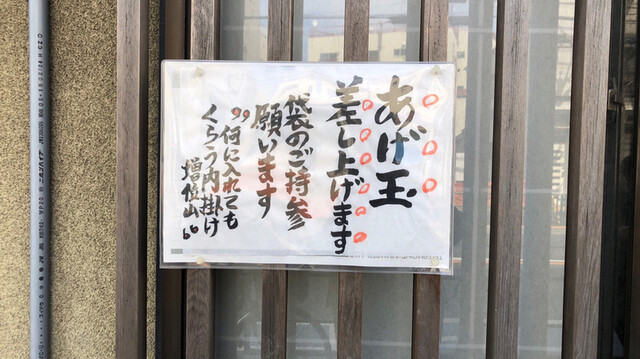 あげ玉
差し上げます
袋のご持参
願います
〝何に入れても
くらう内掛け
増位山〟